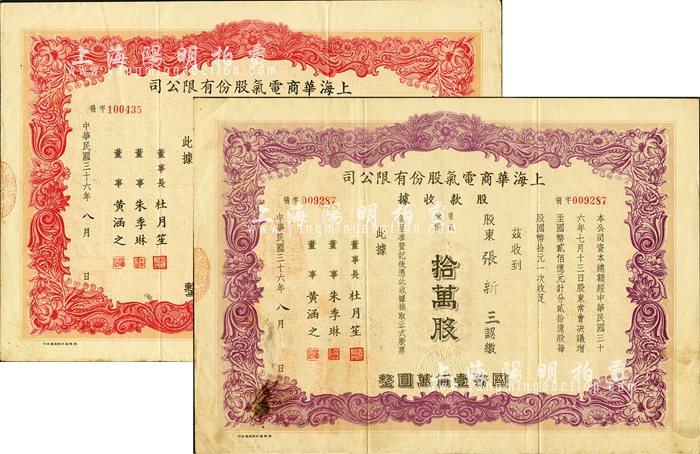 上海陽明拍賣
司公限有份股氣電商華海上
字 100435
此據
董事長 杜月笙
董事 朱季琳
董事 黃涵之
中華民國三十六年八月 日
整
司公限有份股氣電商華海上
據收款股
字 009287
字 009287
本公司資本總額經中華民國三十
六年七月十三日股東常會決議增
至國幣貳佰億元計分貳拾億股每
股國幣拾元一次收足
茲收到
股東張新三認繳
拾萬股
整圓萬佰壹幣國
俟呈准登記後憑此收據換取正式股票
此據
董事長 杜月笙
董事 朱季琳
董事 黃涵之
中華民國三十六年八月 日
上海陽明拍賣
yangmingauction.com